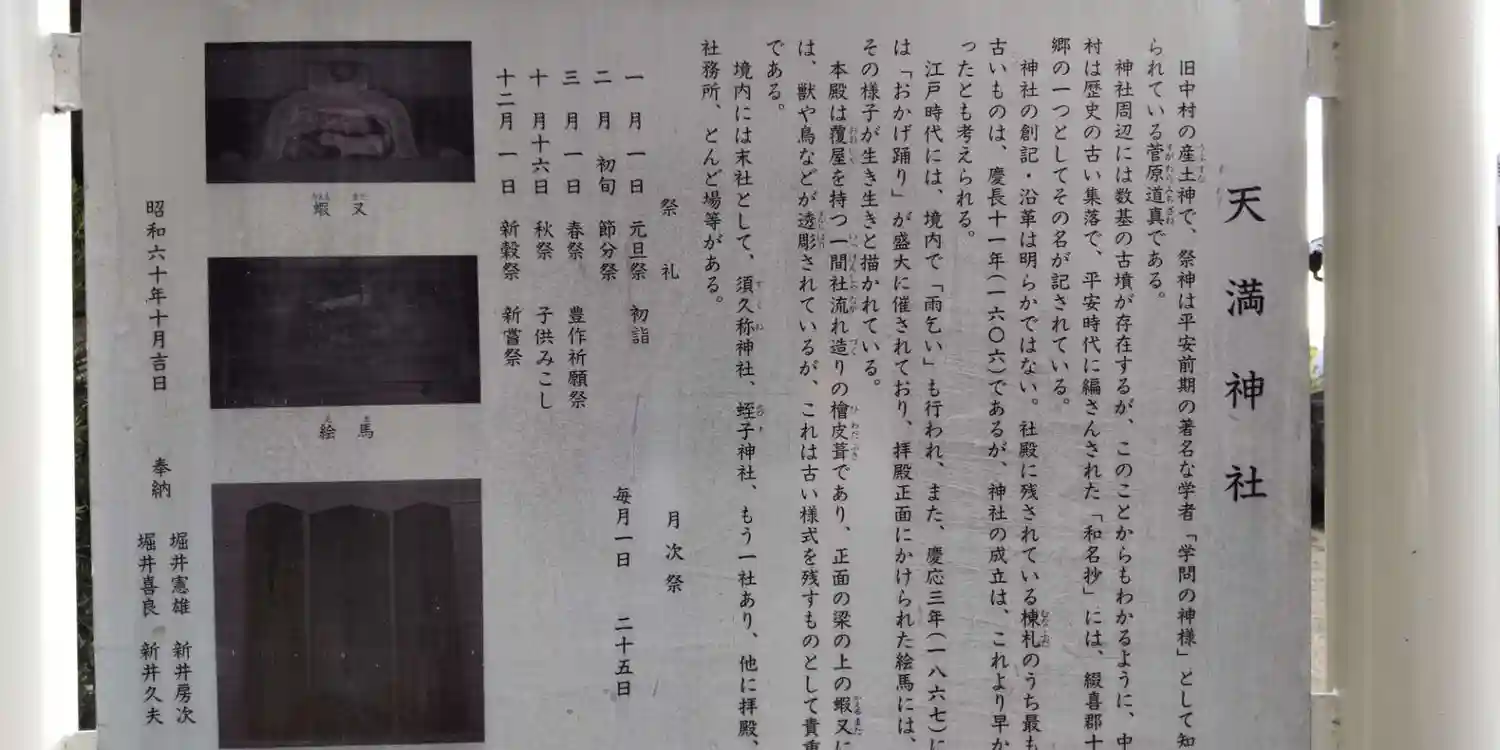 天満神社
旧中村の産土神で、祭神は平安前期の著名な学者「学問の神様」として知
られている菅原道真である。
神社周辺には数基の古墳が存在するが、このことからもわかるように、中
村は歴史の古い集落で、平安時代に編さんされた「和名抄」には、綴喜郡十
郷の一つとしてその名が記されている。
神社の創記・沿革は明らかではない。社殿に残されている棟札のうち最も
古いものは、慶長十一年(一六〇六)であるが、神社の成立は、これより早か
ったとも考えられる。
江戸時代には、境内で「雨乞い」も行われ、また、慶応三年(一八六七)に
は「おかげ踊り」が盛大に催されており、拝殿正面にかけられた絵馬には、
その様子が生き生きと描かれている。
本殿は覆屋を持つ一間社流れ造りの檜皮葺であり、正面の梁の上の蝦又に
は、獣や鳥などが透彫されているが、これは古い様式を残すものとして貴重
である。
境内には末社として、須久称神社、蛭子神社、もう一社あり、他に拝殿、
社務所、とんど場等がある。
祭礼
一月一日 元旦祭 初詣
二月 初旬 節分祭
三月一日 春祭 豊作祈願祭
十月十六日 秋祭 子供みこし
十二月一日 新穀祭 新嘗祭
月次祭
毎月一日 二十五日
蝦又
絵馬
昭和六十年十月吉日
奉納
堀井憲雄 新井房次
堀井喜良 新井久夫